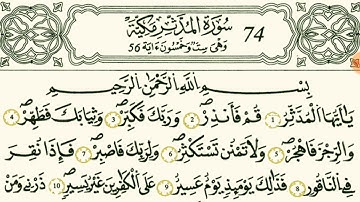 سُورَةُ الْمُدَّثِّرِ مَكِّيَّةٌ 74
وَهِيَ سِتٌّ وَخَمْسُونَ ءَايَة 56
بِسْمِ اللَّهِ الرَّحْمَٰنِ الرَّحِيمِ
يَا أَيُّهَا الْمُدَّثِّرُ 1 قُمْ فَأَنذِرْ 2 وَرَبَّكَ فَكَبِّرْ 3 وَثِيَابَكَ فَطَهِّرْ 4
وَالرُّجْزَ فَاهْجُرْ 5 وَلَا تَمْنُن تَسْتَكْثِرُ 6 وَلِرَبِّكَ فَاصْبِرْ 7 فَإِذَا نُقِرَ
فِي النَّاقُورِ 8 فَذَٰلِكَ يَوْمَئِذٍ يَوْمٌ عَسِيرٌ 9 عَلَى الْكَافِرِينَ غَيْرُ يَسِيرٍ 10 ذَرْنِي وَمَنْ